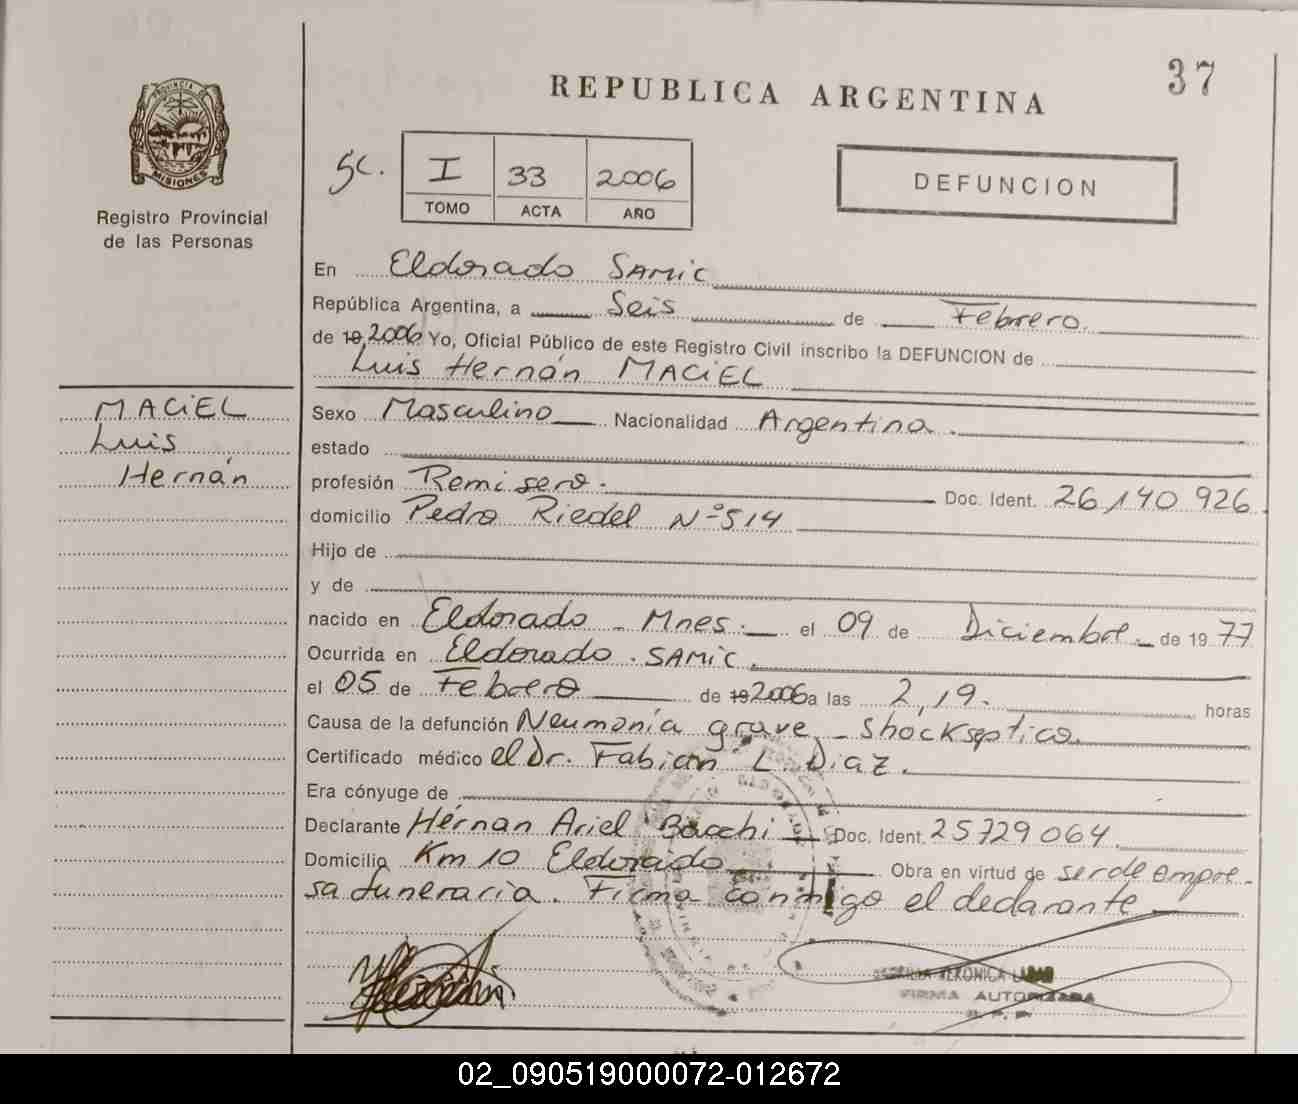 37
REPUBLICA ARGENTINA
PROVINCIA DE
MISIONES
Registro Provincial
de las Personas
Sc. I 33 2006
TOMO ACTA AÑO
DEFUNCION
En Eldorado SAMIC
República Argentina, a Seis de Febrero.
de 19 2006 Yo, Oficial Público de este Registro Civil inscribo la DEFUNCION de
Luis Hernán MACIEL
MACIEL
Luis
Hernán
Sexo Masculino Nacionalidad Argentina.
estado
profesión Remisero. Doc. Ident. 26,140 926
domicilio Pedro Riedel Nº 514
Hijo de
y de
nacido en Eldorado - Mnes. el 09 de Diciembre de 1977
Ocurrida en Eldorado. SAMIC.
el 05 de Febrero de 19 2006 a las 2,19. horas
Causa de la defunción Neumonía grave - Shockseptico.
Certificado médico el Dr. Fabian L. Diaz.
Era cónyuge de
Declarante Hérnan Ariel Bacchi Doc. Ident. 25729064.
Domicilio Km 10 Eldorado Obra en virtud de ser de empre-
sa funeraria. Firma conmigo el declarante
VERONICA
FIRMA AUTORIZADA
R. P. P.
02_090519000072-012672